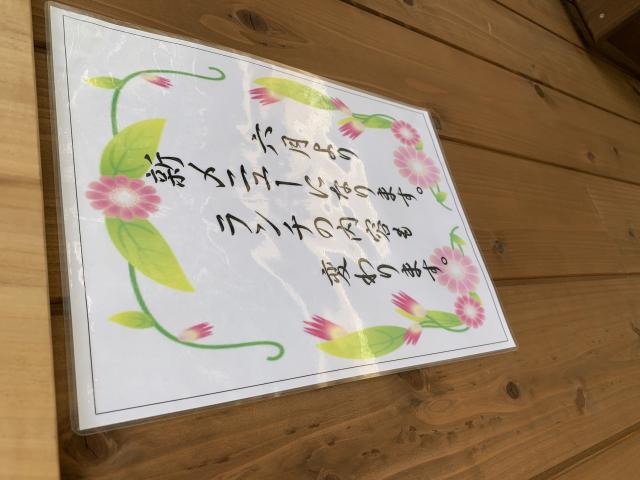 六月より
新メニューになります。
ランチの内容も
変わります。